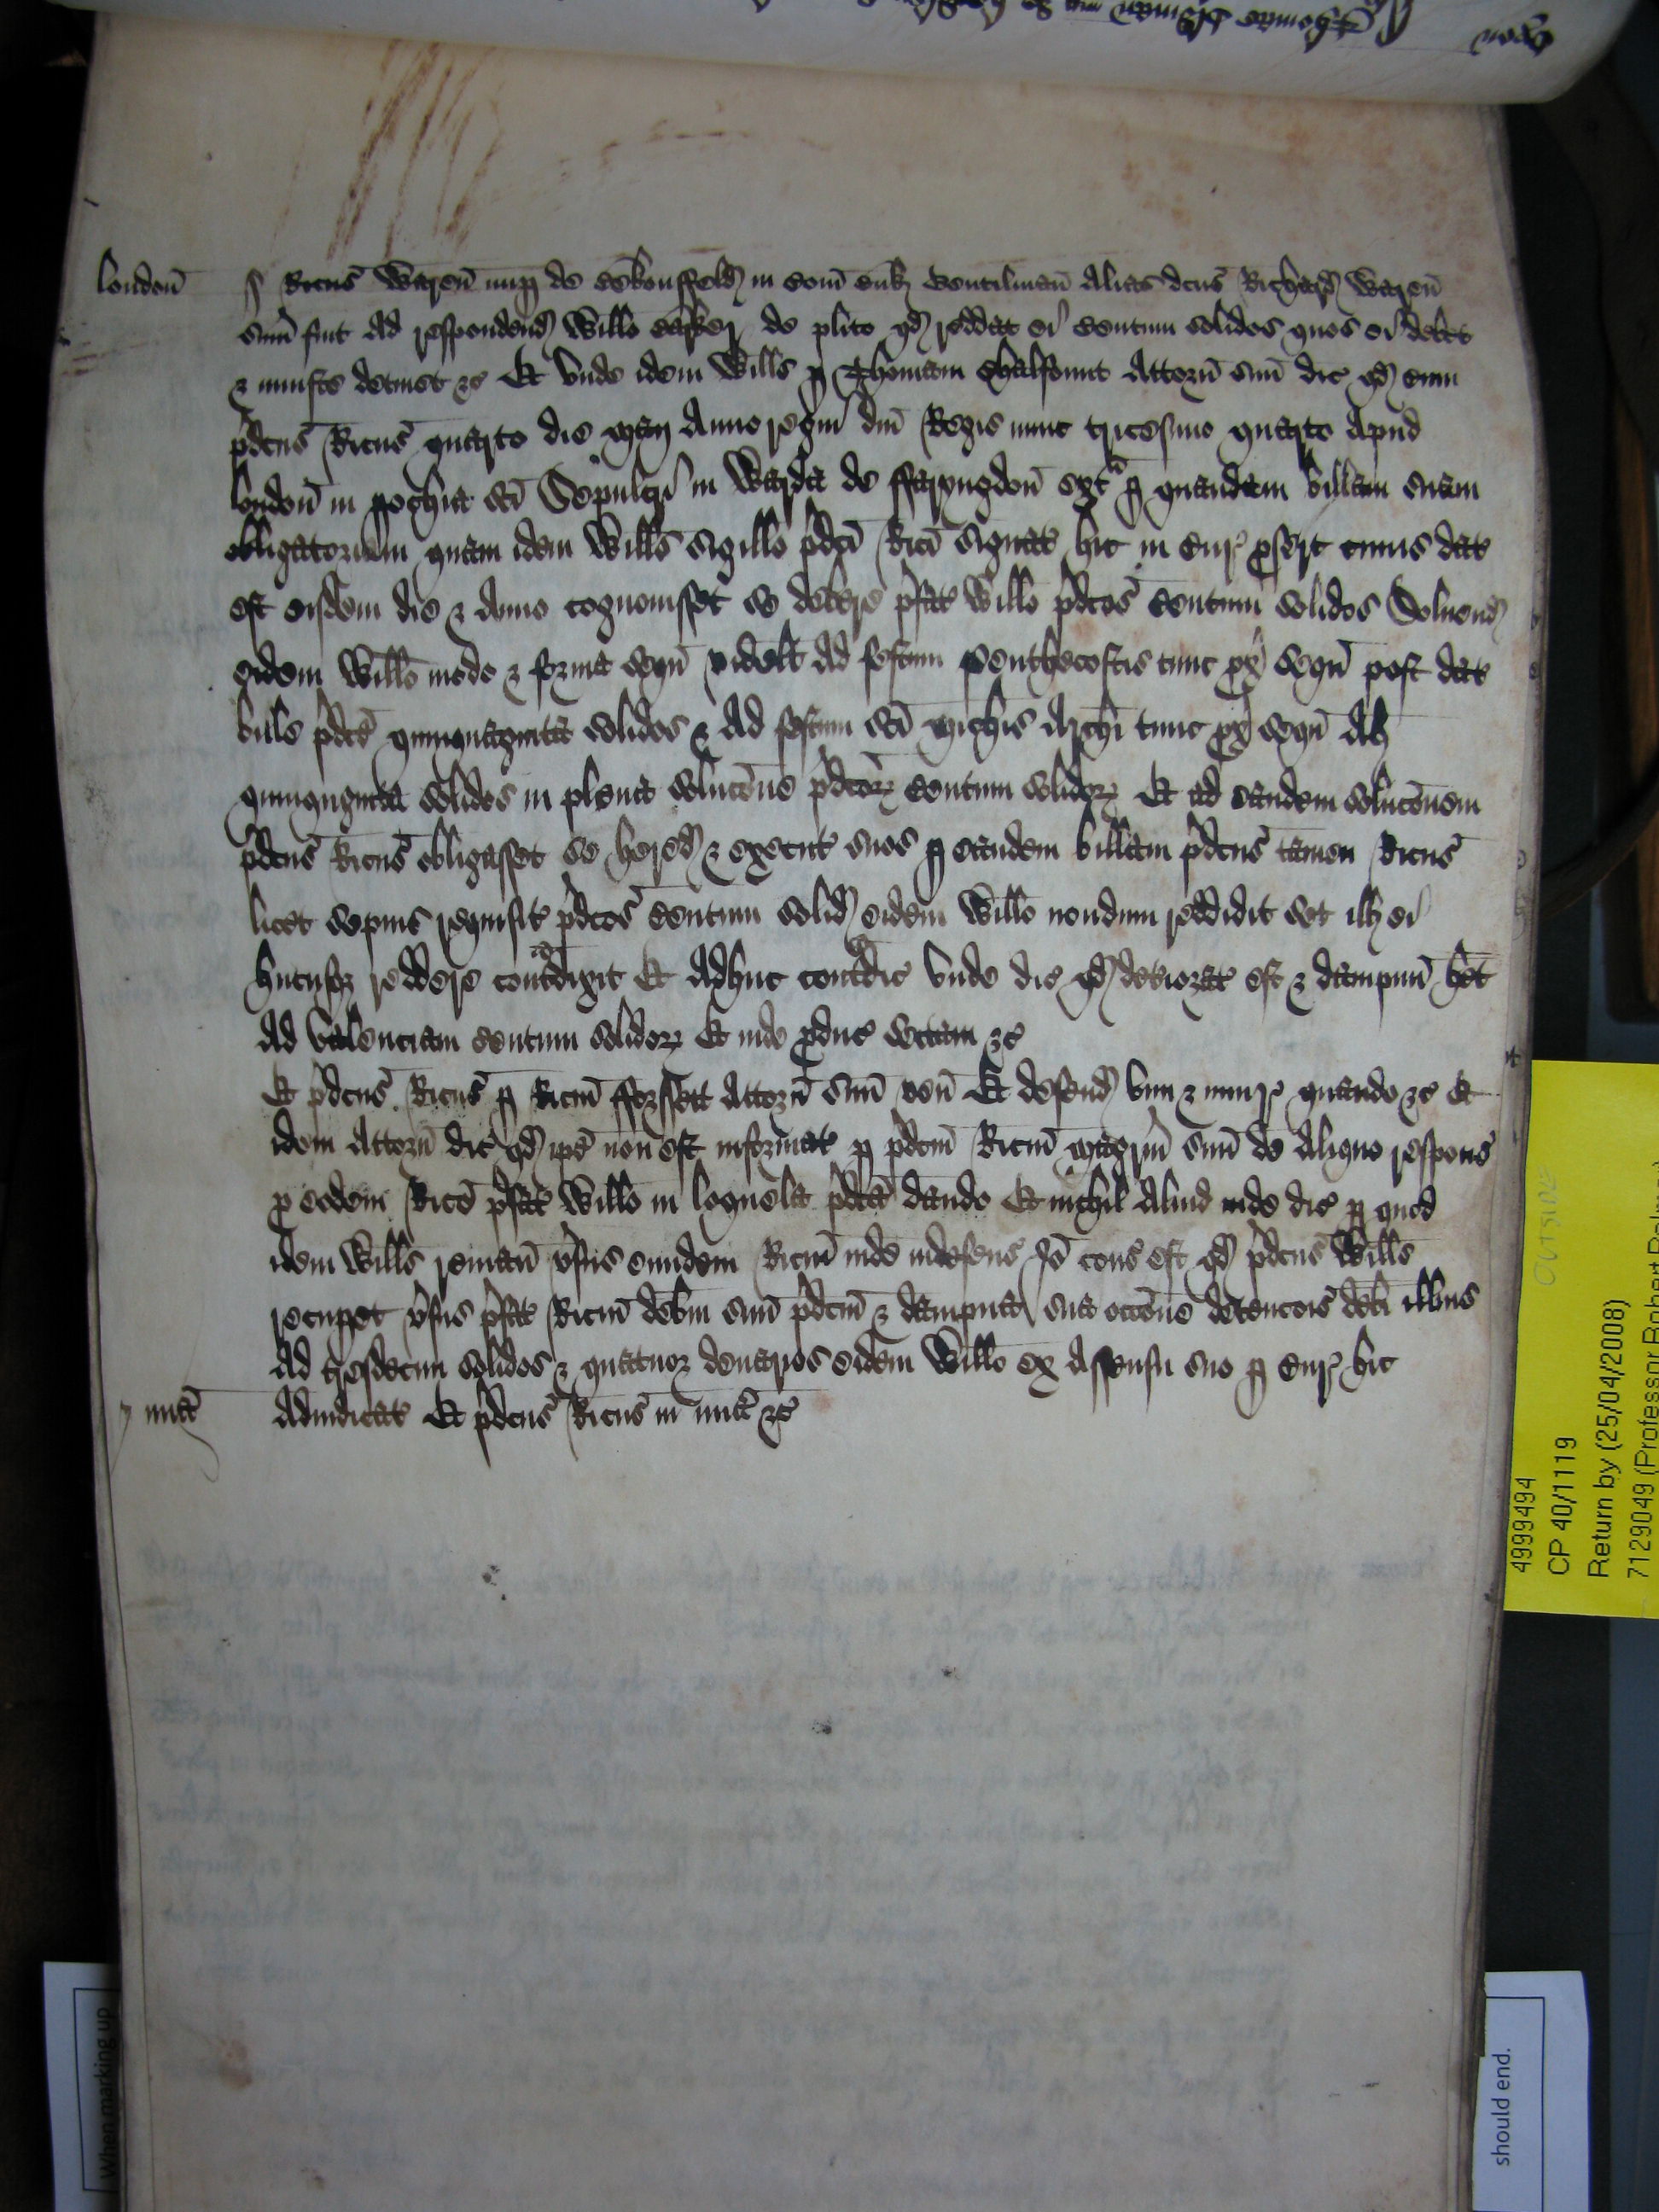 London̄ s Ricus̄ Waren̄ nup de Bekensfeld in Com̄ Buk Gentilman̄ Alias dcus̄ Richard Waren̄
sum̄ fuit Ad respondend Willō de plito qd reddat ei Centum solidos quos ei debet
& iniuste detinet &c Et unde idem Wills̄ p Thomam Chalfount Attorn̄ suū dic qd cum
pdcus̄ Ricus̄ quarto die Maij Anno regni dn̄i Regis nunc tricesimo quarto Apud
london̄ in pochia sc̄i Sepulcri in Warda de ffaryngdon̄ ext̄ p quandam billam suam
obligatoriam quam idem Wills̄ sigillo pdc̄i Ricī signat hic in Cur pfert cuius dat
est eisdem die & Anno cognouisset se debere pfat Willō pdcos̄ Centum solidos Soluend
eidem Willō modo & forma seqū videlt Ad festum Penthecostis tunc px̄ seqū post dat
bille pdcē quinquaginta solidos & Ad festum sc̄i Michis̄ Archī tunc px̄ seqū Al
quinquaginta solidos in plena soluco̅ne pdcor̄ Centum solidor Et ad eandem soluco̅nem
pdcus̄ Ricus̄ obligasset se hered & execut suos p eandem billam pdcus̄ tamen Ricus̄
licet sepius requisit pdcos̄ Centum solid eidem Willō nondum reddidit set ill ei
hucusq reddere cont̄dixit Et Adhuc cont̄dic unde dic qd deteriorat est & dampnu̅ het̄
Ad valenciam Centum solidor Et inde pduc sectam &c
Et pdcus̄ Ricus̄ p Ricm̄ fforsett Attorn̄ suu̅ ven̄ Et defend vim & iniur quando &c Et
idem Attorn̄ dic qd ip̄e non est informat p pdcm̄ Ricm̄ Magrm̄ suu̅ de Aliquo respons
p eodem Rico̅ pfat Willō in loquela pdca̅ dando Et nichil Aliud inde dic p quod
idem Wills̄ reman̄ vsus eundem Ricm̄ inde indefens Io̅ cons est qd pdcus̄ Wills̄
recupet vsus pfat Ricm̄ debm̅ suu̅ pdcm̄ & dampna sua occo̅ne detencois̅ debi̅ illius
Ad tresdecim solidos & quatuor denarios eidem Willō ex Assensu suo p Cur hic
mi̅a Adiudicat Et pdcus̄ Ricus̄ in mi̅a &c
4999494
CP 40/1119
Return by (25/04/2008)
7129049 (Professor Robert Palmer)
OUTSIDE
When marking up
should end.